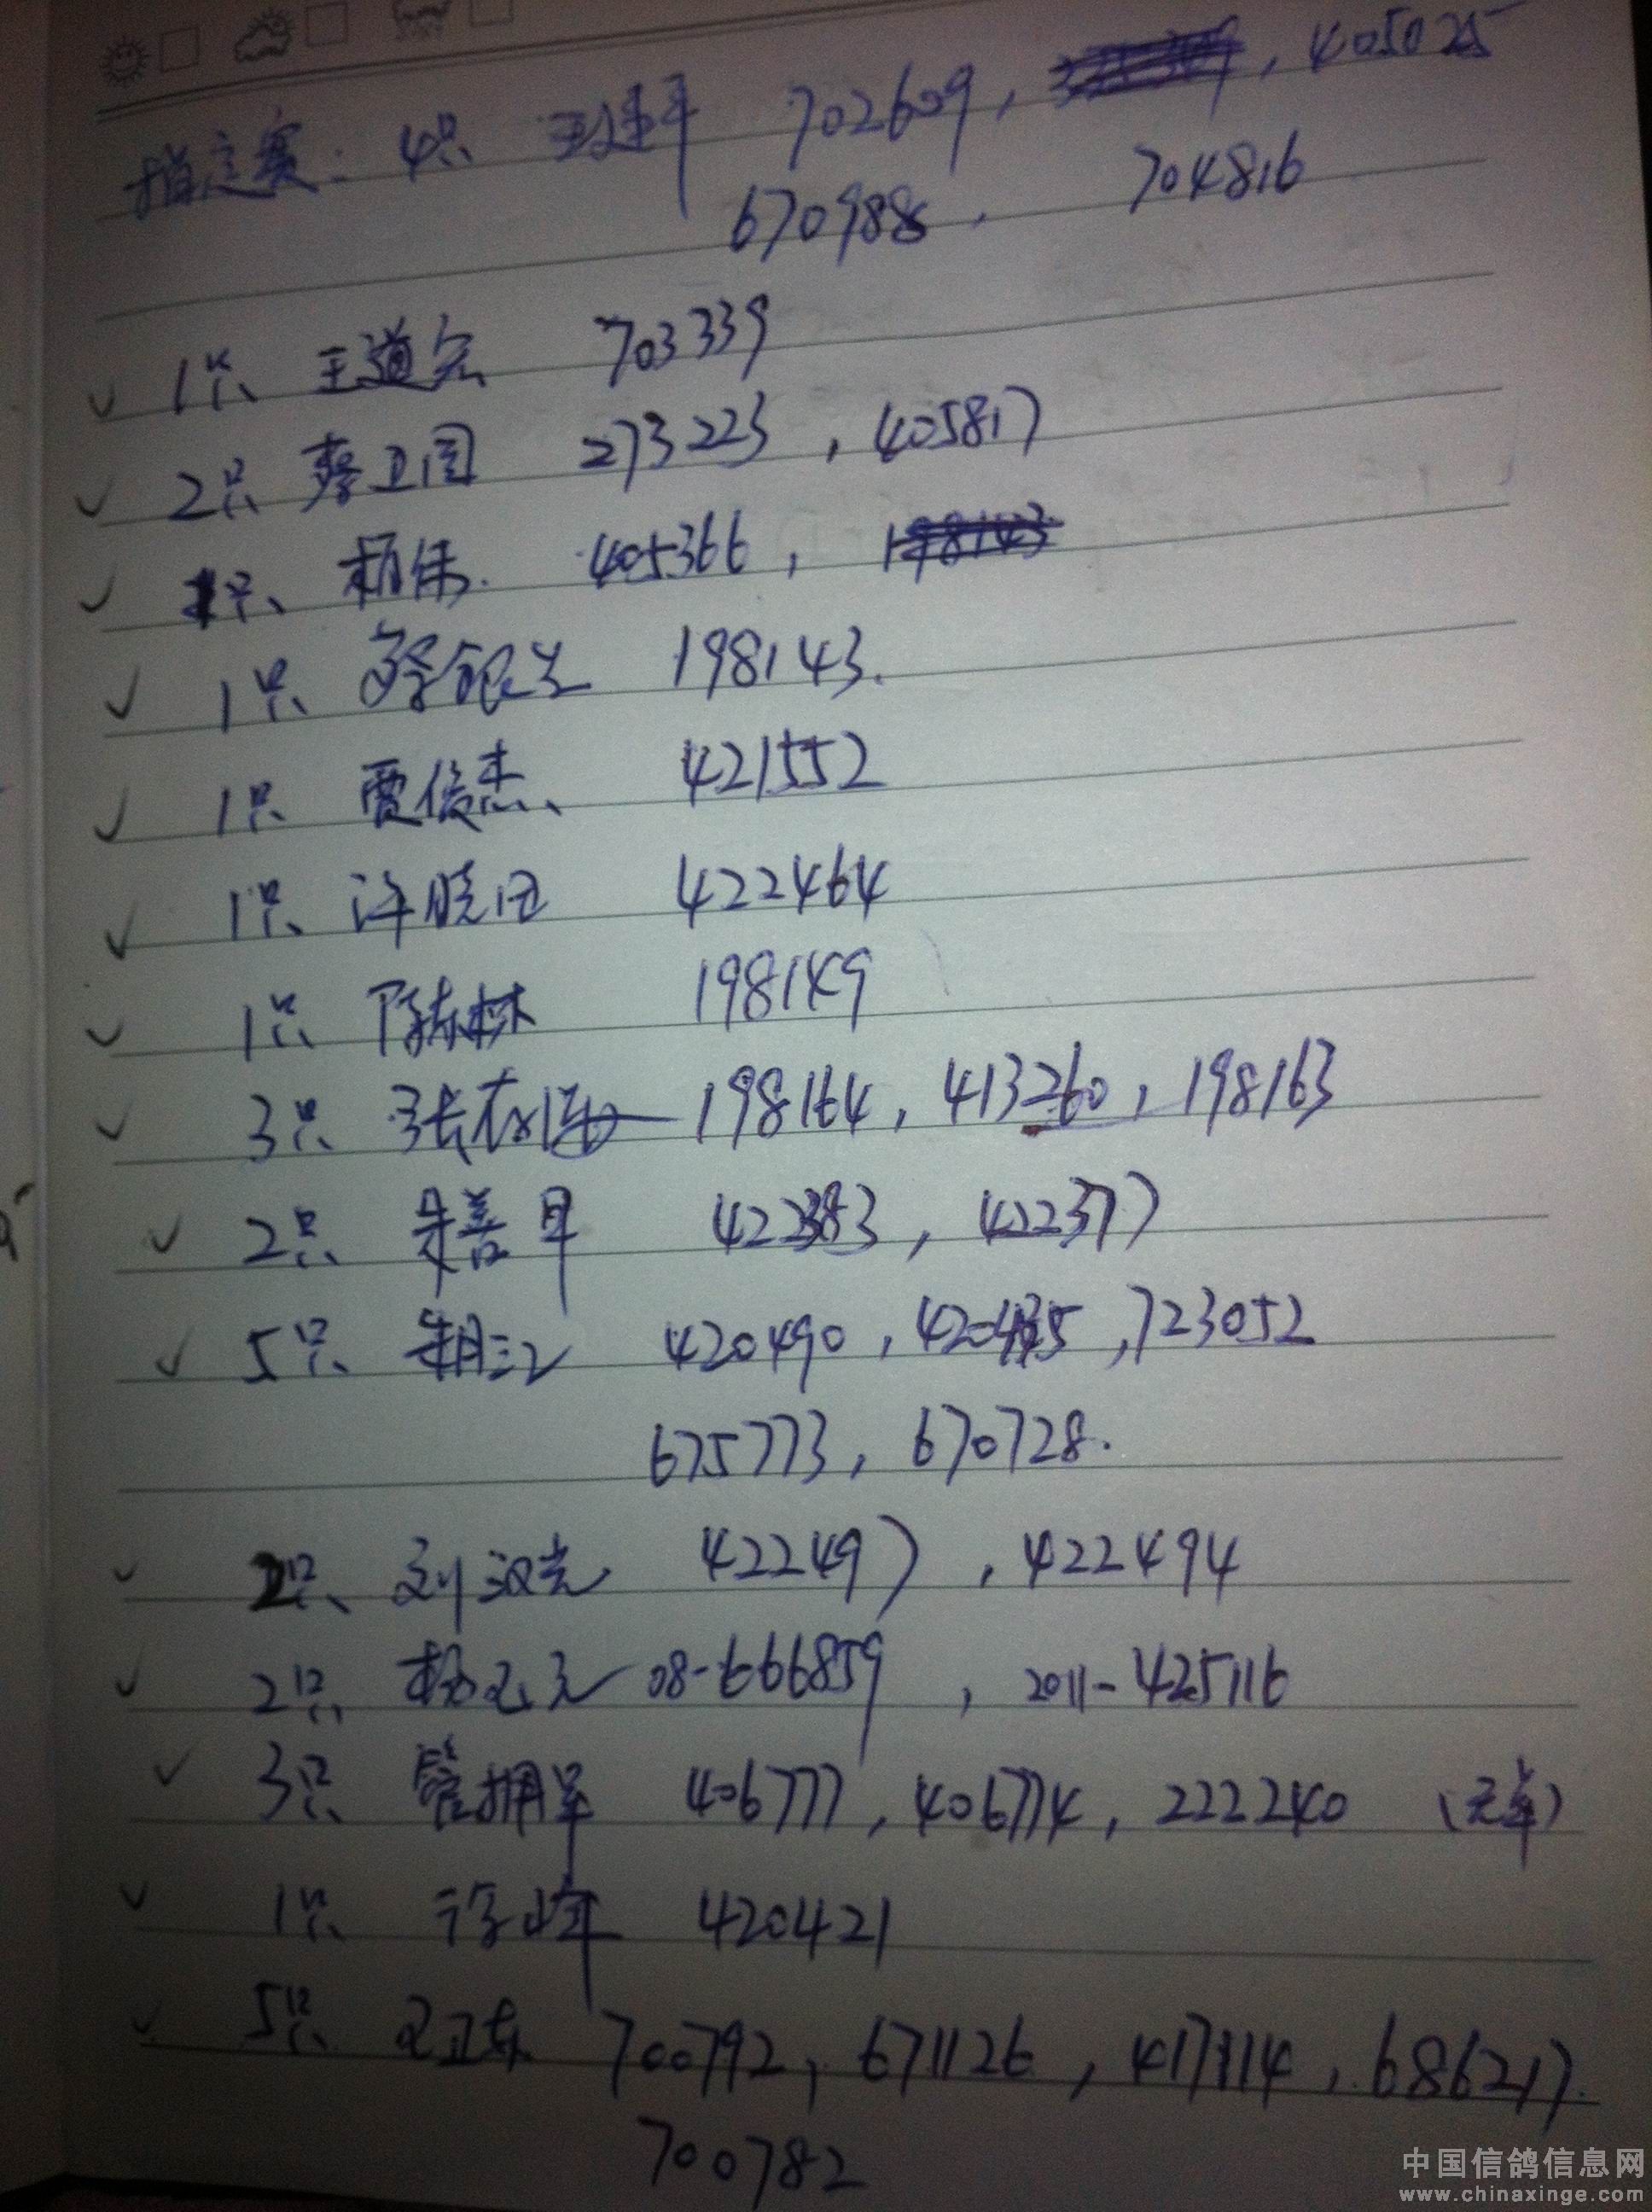 指定赛: 4只 702609, 405025
670988, 704816
1只 王道宏 703339
2只 蔡卫国 273223, 405817
1只 杨伟. 405366, 198143
1只 蔡银兰 198143.
1只 贾俊杰 421552
1只 许晓 422464
1只 陈春林 198149
3只 张 198164, 413260, 198163
2只 朱善早 422383, 422377
5只 420490, 420435, 723052
675773, 670728.
2只 刘汉光 422497, 422494
2只 杨正元 08-666859, 2011-425116
3只 管拥军 406777, 406774, 222240 (无单)
1只 徐峰 420421
5只 王卫东 700792, 671126, 417114, 686217.
700782
中国信鸽信息网
www.chinaxinge.com